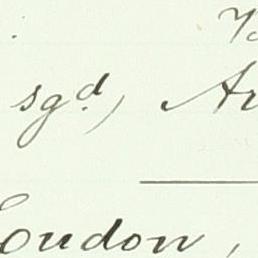 sgd, Ar
London,